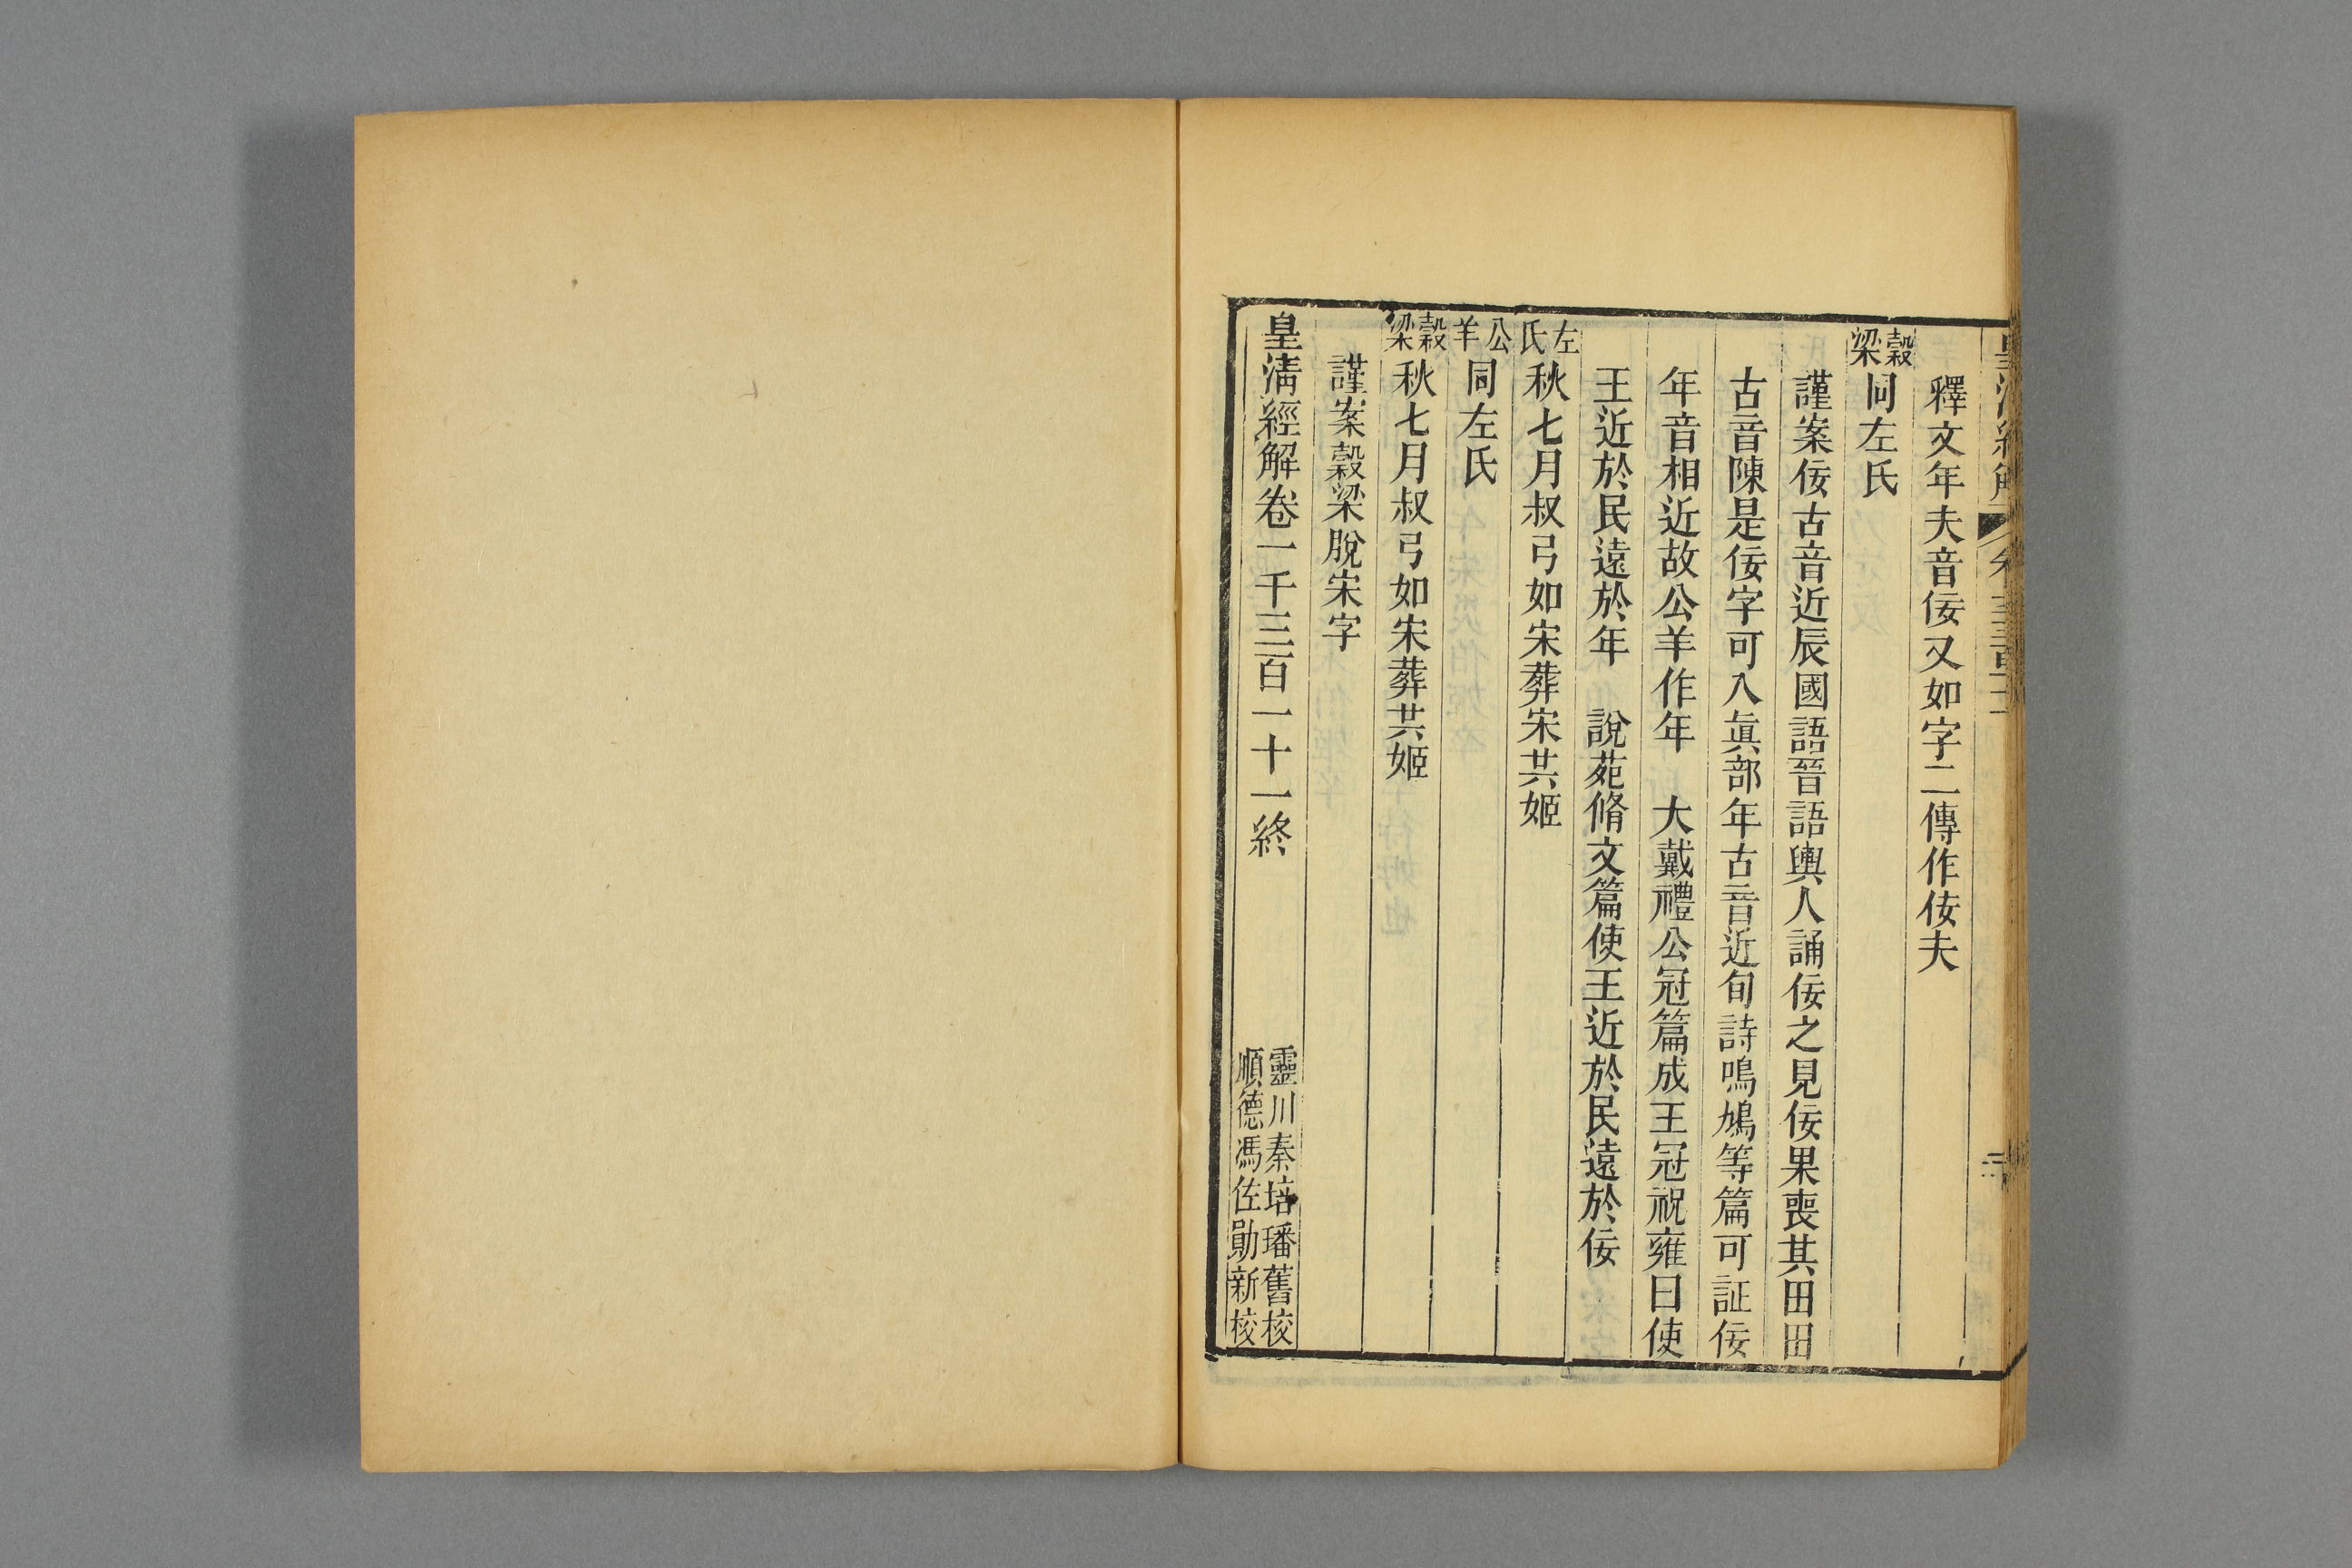 皇清經解
釋文年夫音佞又如字二傳作佞夫
穀梁同左氏
謹案佞古音近辰國語晉語輿人誦佞之見佞果喪其田田
古音陳是佞字可入眞部年古音近旬詩鳴鳩等篇可証佞
年音相近故公羊作年　大戴禮公冠篇成王冠祝雍曰使
王近於民遠於年　說苑脩文篇使王近於民遠於佞
左氏秋七月叔弓如宋葬宋共姬
公羊同左氏
穀梁秋七月叔弓如宋葬共姬
謹案穀梁脫宋字
皇清經解卷一千三百一十一終
靈川秦培璠舊校
順德馮佐勛新校